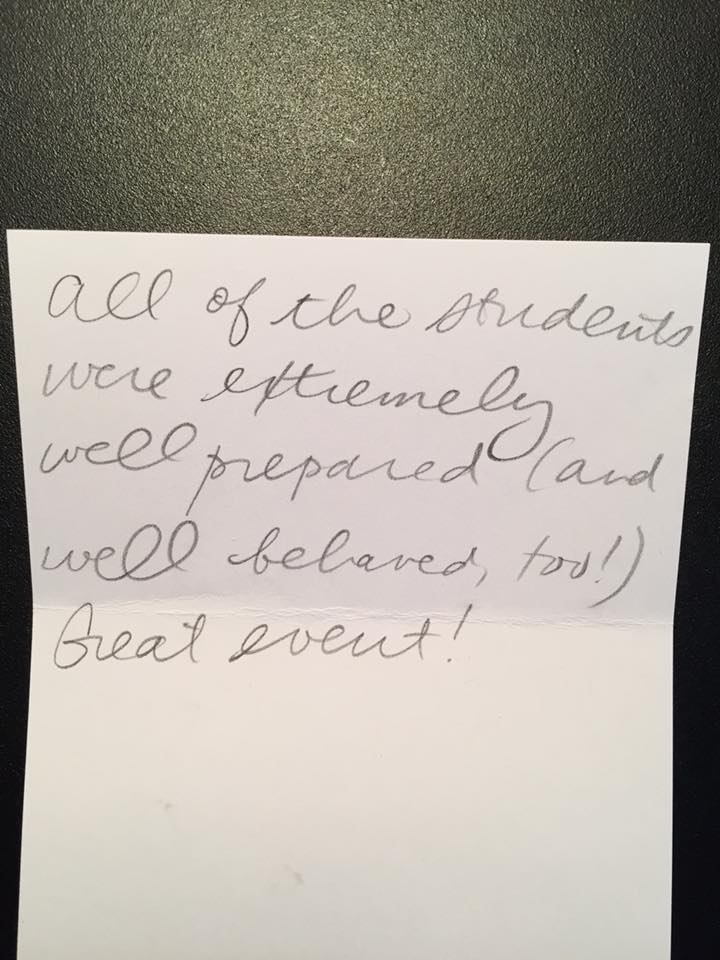 All of the students
were extremely
well prepared (and
well behaved, too!)
Great event!